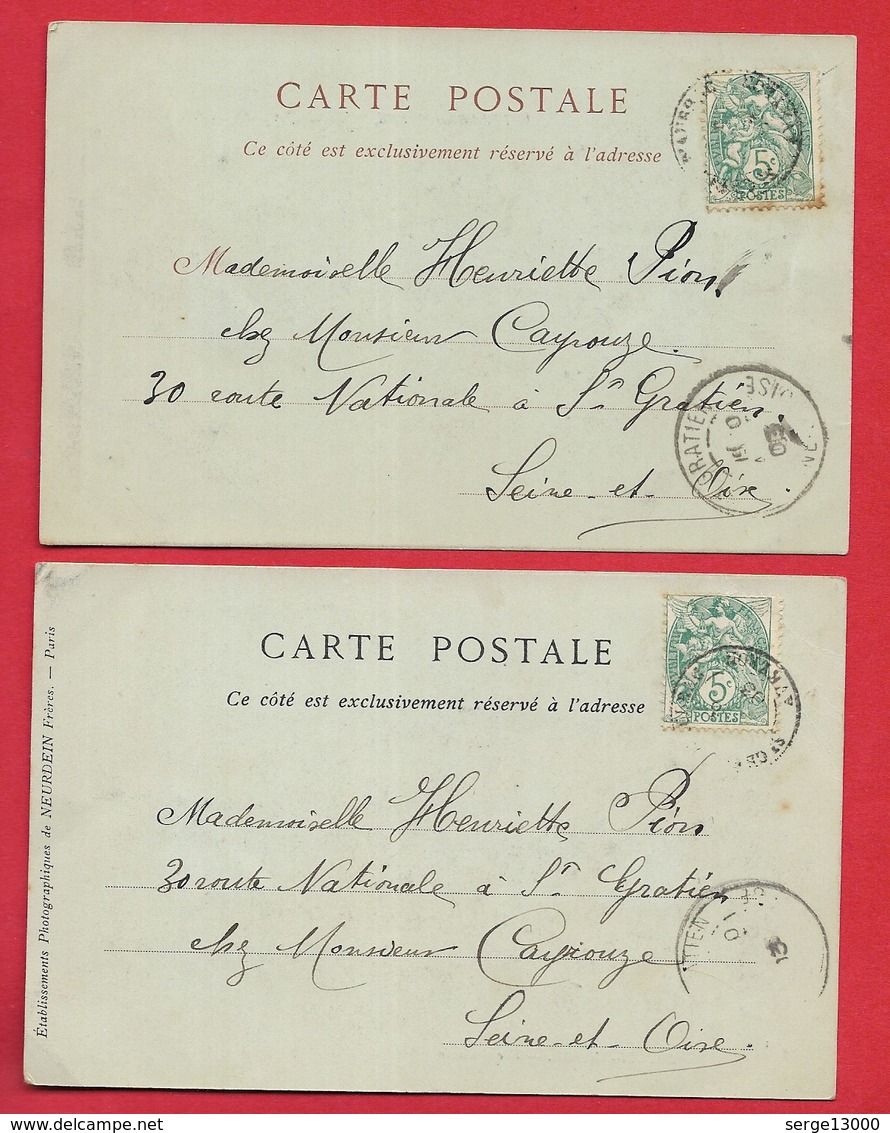 CARTE POSTALE
Ce côté est exclusivement réservé à l'adresse
5c
POSTES
Mademoiselle Henriette Pion
chez Monsieur Cayrouze.
30 route Nationale à St Gratien,
Seine-et-Oise.
GRATIEN
OISE
CARTE POSTALE
Ce côté est exclusivement réservé à l'adresse
5c
POSTES
Établissements Photographiques de NEURDEIN Frères. — Paris
Mademoiselle Henriette Pion
30 route Nationale à St Gratien
chez Monsieur Cayrouze
Seine-et-Oise.
serge13000